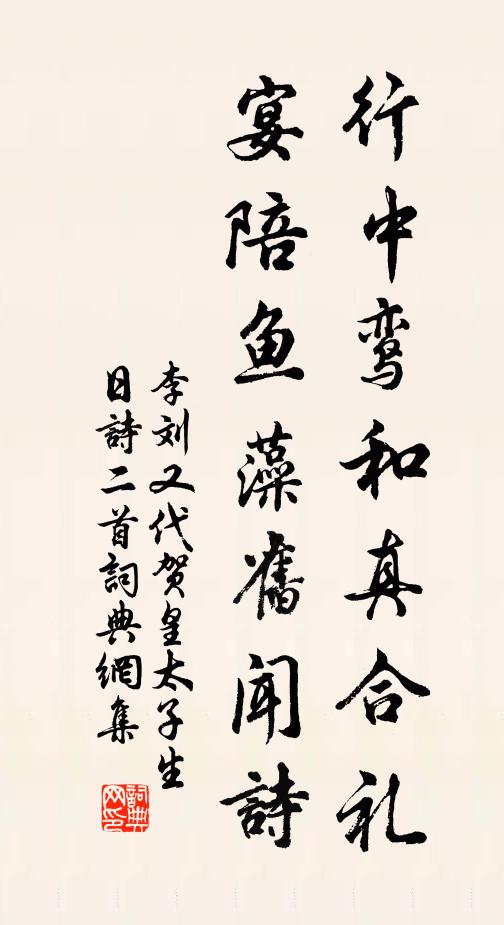 行中鸾和真合礼
宴陪鱼藻舊闻詩
李刘又代贺皇太子生
日詩二首詞典網集
詞典网印